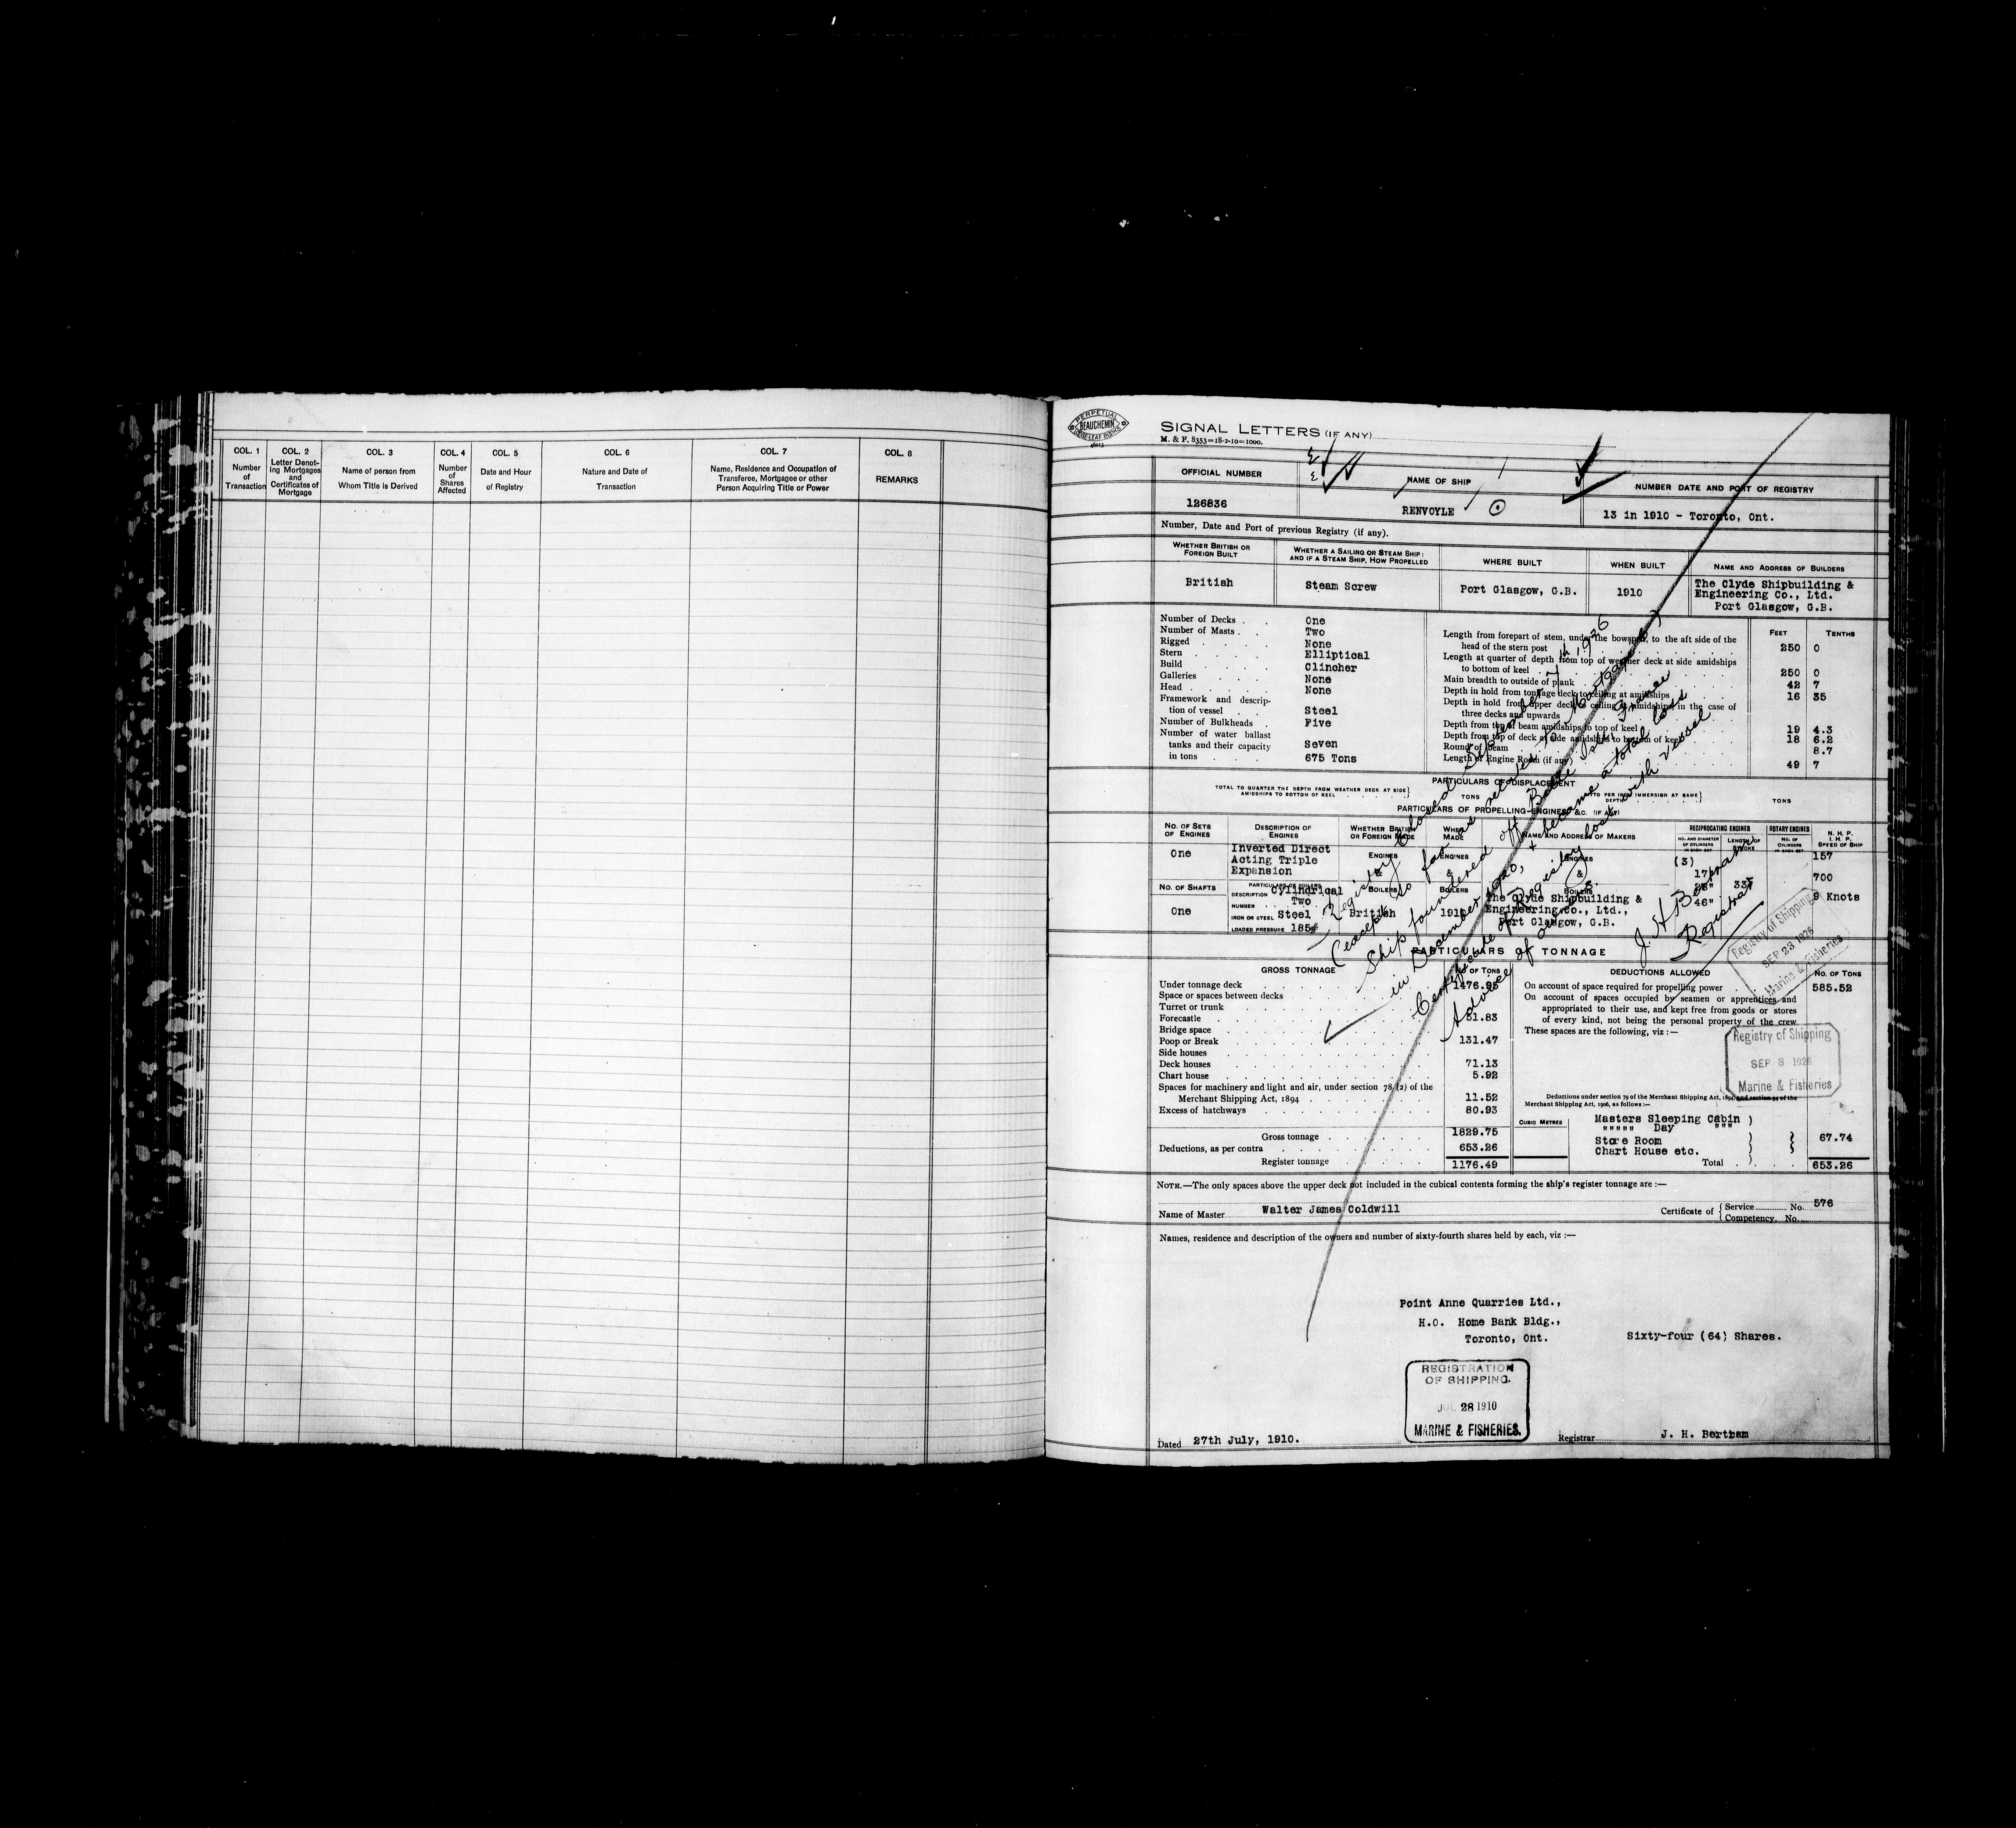 COL. 1
Number
of
Transaction
COL. 2
Letter Denot-
ing Mortgages
and
Certificates of
Mortgage
COL. 3
Name of person from
Whom Title is Derived
COL. 4
Number
of
Shares
Affected
COL. 5
Date and Hour
of Registry
COL. 6
Nature and Date of
Transaction
COL. 7
Name, Residence and Occupation of
Transferee, Mortgagee or other
Person Acquiring Title or Power
COL. 8
REMARKS
PERPETUAL
BEAUCHEMIN
LOOSE LEAF BOOKS
SIGNAL LETTERS (IF ANY)
M. & F. 8353=18-2-10=1000.
OFFICIAL NUMBER
NAME OF SHIP
NUMBER DATE AND PORT OF REGISTRY
126836
RENVOYLE
13 in 1910 - Toronto, Ont.
Number, Date and Port of previous Registry (if any).
WHETHER BRITISH OR
FOREIGN BUILT
WHETHER A SAILING OR STEAM SHIP:
AND IF A STEAM SHIP, HOW PROPELLED
WHERE BUILT
WHEN BUILT
NAME AND ADDRESS OF BUILDERS
British
Steam Screw
Port Glasgow, G.B.
1910
The Clyde Shipbuilding &
Engineering Co., Ltd.
Port Glasgow, G.B.
Number of Decks . . One
Number of Masts . . Two
Rigged . . . None
Stern . . . Elliptical
Build . . . Clincher
Galleries . . . None
Head . . . None
Framework and descrip-
tion of vessel . . Steel
Number of Bulkheads . Five
Number of water ballast
tanks and their capacity Seven
in tons . . . 675 Tons
FEET TENTHS
Length from forepart of stem, under the bowsprit, to the aft side of the
head of the stern post 250 0
Length at quarter of depth from top of weather deck at side amidships
to bottom of keel 250 0
Main breadth to outside of plank 42 7
Depth in hold from tonnage deck to ceiling at amidships 16 35
Depth in hold from upper deck to ceiling at amidships, in the case of
three decks and upwards
Depth from top of beam amidships to top of keel 19 4.3
Depth from top of deck at side amidships to bottom of keel 18 6.2
Round of beam 8.7
Length of Engine Room (if any) 49 7
PARTICULARS OF DISPLACEMENT
TOTAL TO QUARTER THE DEPTH FROM WEATHER DECK AT SIDE
AMIDSHIPS TO BOTTOM OF KEEL
TONS
DITTO PER INCH IMMERSION AT SAME
DEPTH
TONS
PARTICULARS OF PROPELLING ENGINES, &C. (IF ANY)
NO. OF SETS
OF ENGINES
DESCRIPTION OF
ENGINES
WHETHER BRITISH
OR FOREIGN MADE
WHEN
MADE
NAME AND ADDRESS OF MAKERS
RECIPROCATING ENGINES
NO. AND DIAMETER
OF CYLINDERS
IN EACH SET
LENGTH OF
STROKE
ROTARY ENGINES
NO. OF
CYLINDERS
IN EACH SET
N. H. P.
I. H. P.
SPEED OF SHIP
One
Inverted Direct
Acting Triple
Expansion
ENGINES
&
BOILERS
ENGINES
&
BOILERS
ENGINES
&
BOILERS
(3)
17"
28" 33"
46"
157
700
9 Knots
NO. OF SHAFTS
One
PARTICULARS OF BOILERS
DESCRIPTION Cylindrical
NUMBER . . . Two
IRON OR STEEL Steel
LOADED PRESSURE 185#
British
1910
The Clyde Shipbuilding &
Engineering Co., Ltd.,
Port Glasgow, G.B.
PARTICULARS OF TONNAGE
GROSS TONNAGE
NO. OF TONS
Under tonnage deck 1476.95
Space or spaces between decks
Turret or trunk
Forecastle 51.83
Bridge space
Poop or Break 131.47
Side houses
Deck houses 71.13
Chart house 5.92
Spaces for machinery and light and air, under section 78 (2) of the
Merchant Shipping Act, 1894 11.52
Excess of hatchways 80.93
Gross tonnage 1829.75
Deductions, as per contra 653.26
Register tonnage 1176.49
DEDUCTIONS ALLOWED
NO. OF TONS
On account of space required for propelling power 585.52
On account of spaces occupied by seamen or apprentices and
appropriated to their use, and kept free from goods or stores
of every kind, not being the personal property of the crew
These spaces are the following, viz :—
Deductions under section 79 of the Merchant Shipping Act, 1894, and section 54 of the
Merchant Shipping Act, 1906, as follows :—
CUBIC METRES
Masters Sleeping Cabin )
""""" Day """
Store Room
Chart House etc.
67.74
Total 653.26
Registry closed September 7th, 1926
(except so far as relates to Mortgages)
Ship foundered off Belle Isle, France
in December 1920, & became a total loss
Certificate of Registry lost with vessel
Advice of owners.
J. H. Bertram
Registrar
Registry of Shipping
SEP 23 1926
Marine & Fisheries
Registry of Shipping
SEP 8 1926
Marine & Fisheries
NOTE.—The only spaces above the upper deck not included in the cubical contents forming the ship's register tonnage are :—
Name of Master Walter James Coldwill
Certificate of { Service No. 576
Competency. No.
Names, residence and description of the owners and number of sixty-fourth shares held by each, viz :—
Point Anne Quarries Ltd.,
H.O. Home Bank Bldg.,
Toronto, Ont.
Sixty-four (64) Shares.
REGISTRATION
OF SHIPPING.
JUL 28 1910
MARINE & FISHERIES.
Dated 27th July, 1910.
Registrar J. H. Bertham